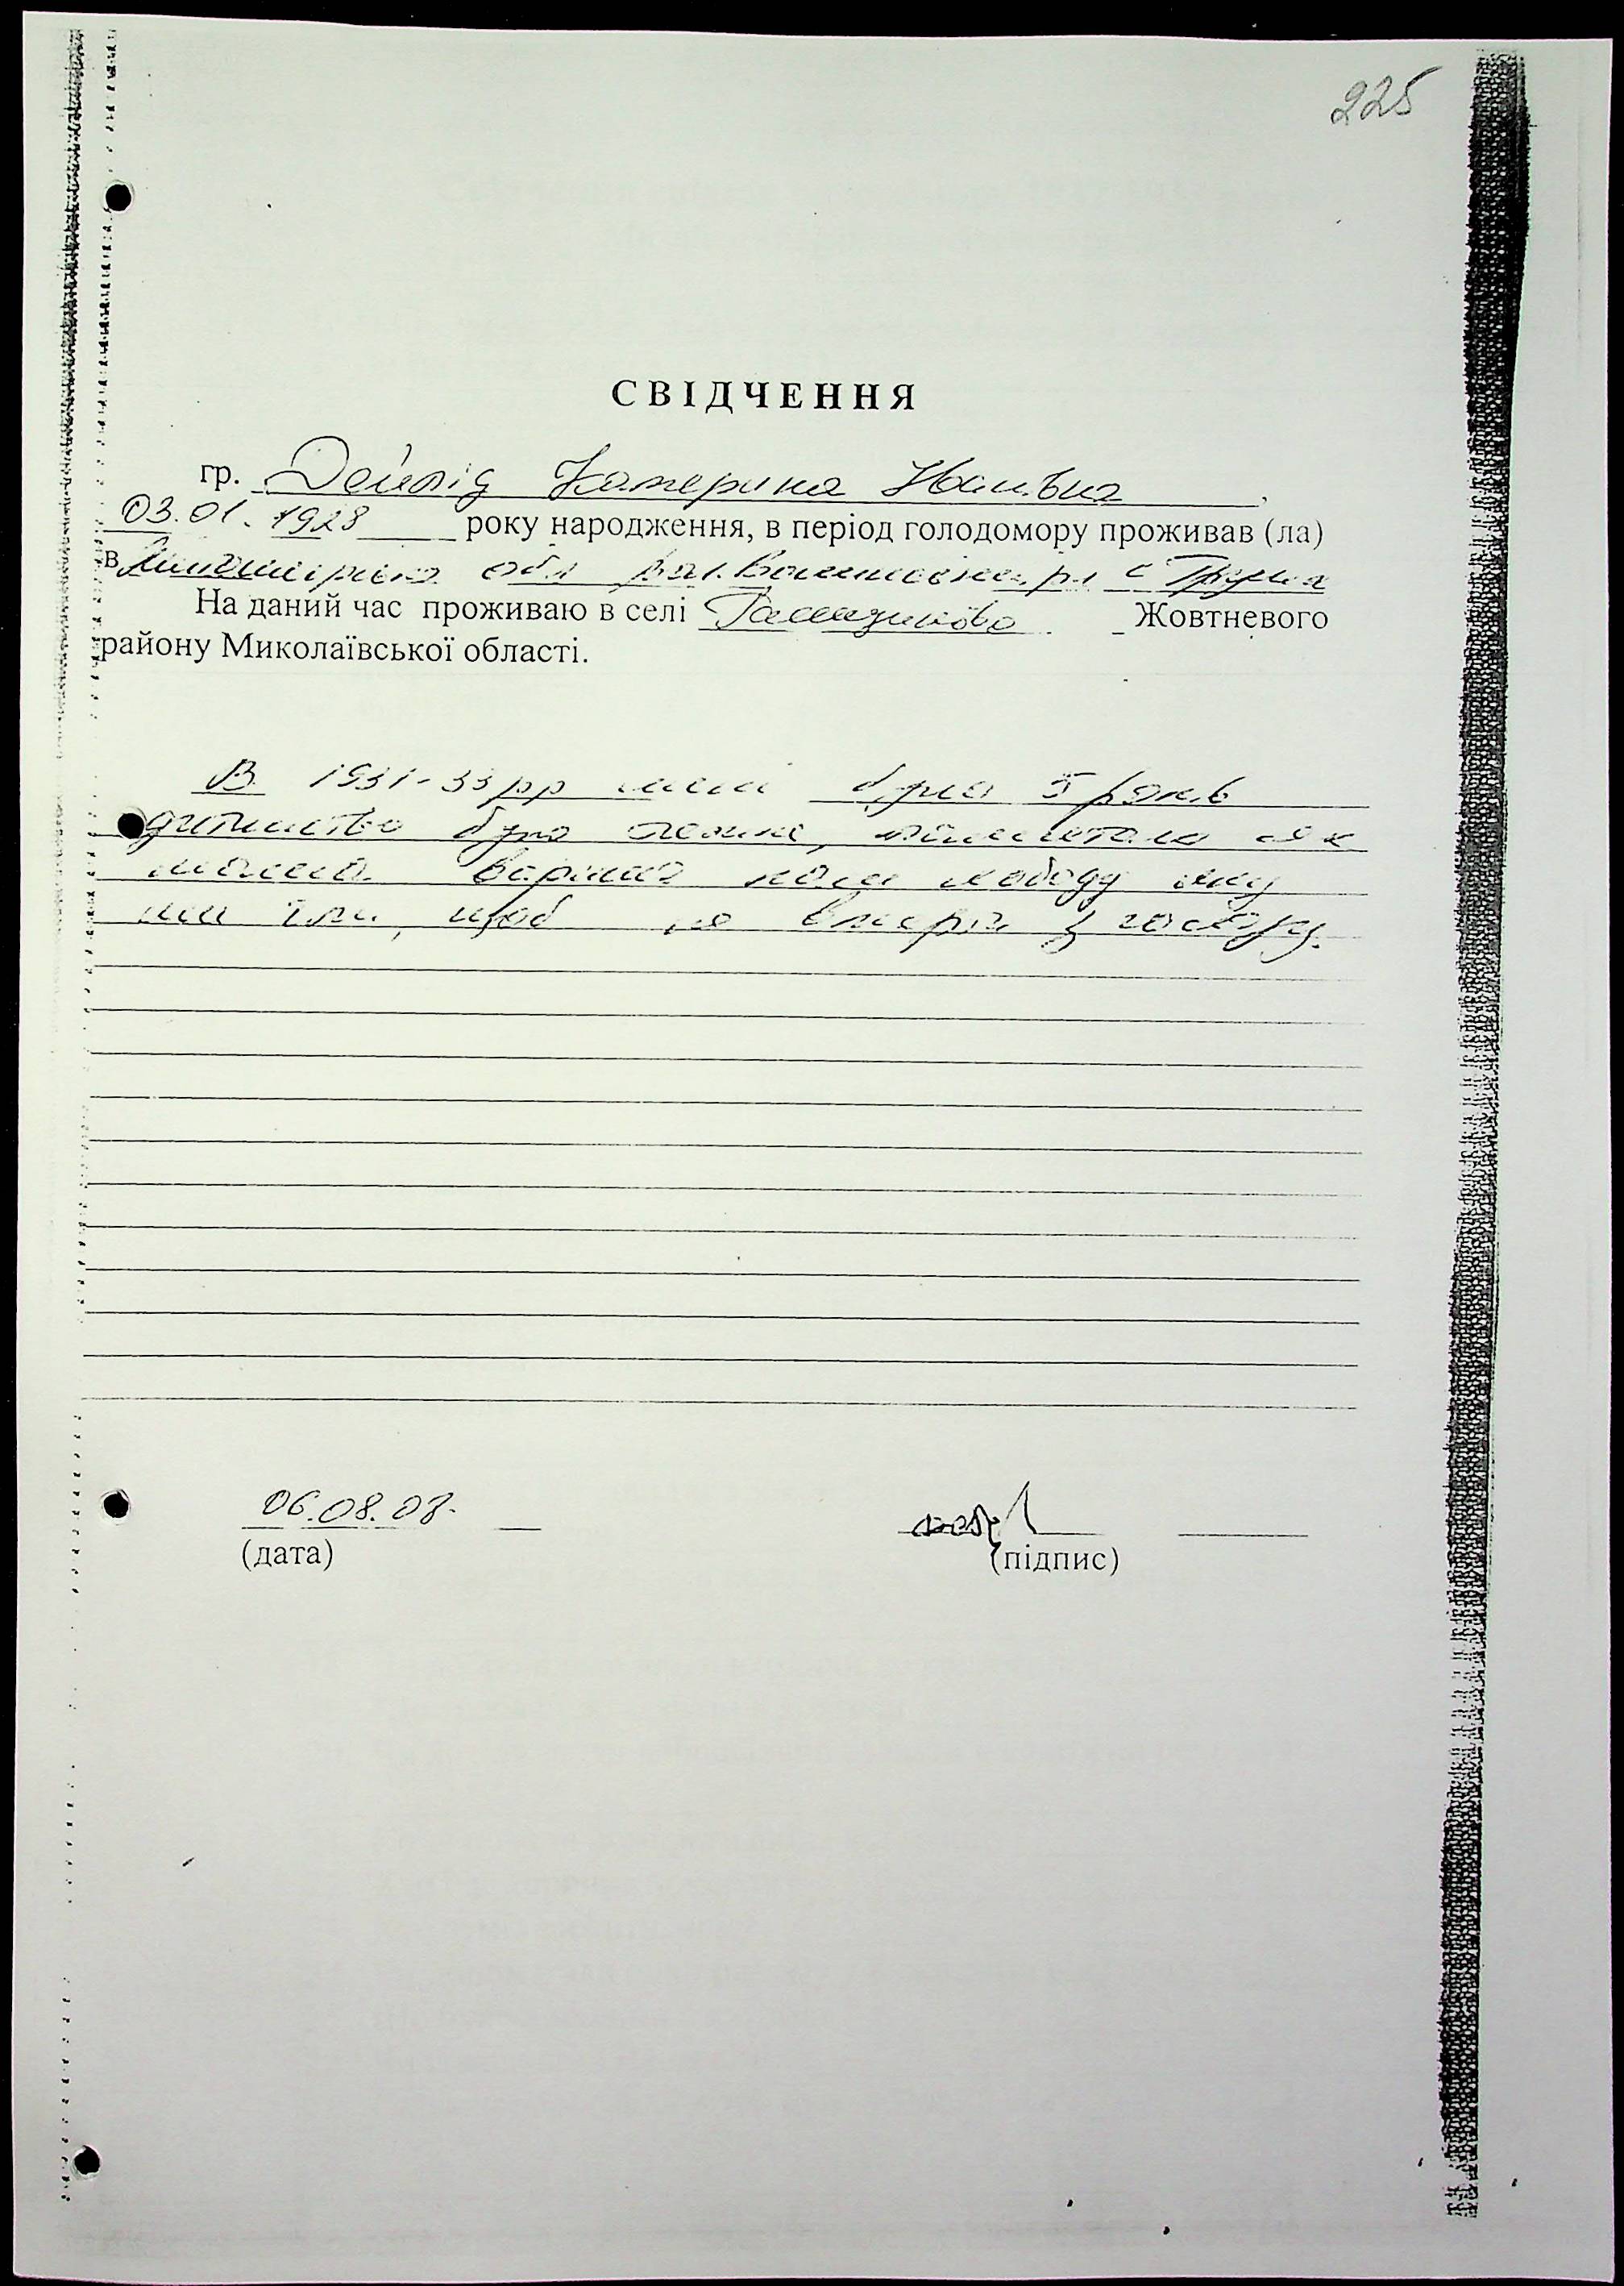 225
СВІДЧЕННЯ
гр. Катерина Іванівна
03.01.1928 року народження, в період голодомору проживав (ла)
в обл с
На даний час проживаю в селі Жовтневого
району Миколаївської області.
В 1931-33 рр мені було 5 років
дитинство було як
варила нам лободу яку
ми їли, щоб не вмерти з голоду.
06.08.08.
(дата) (підпис)